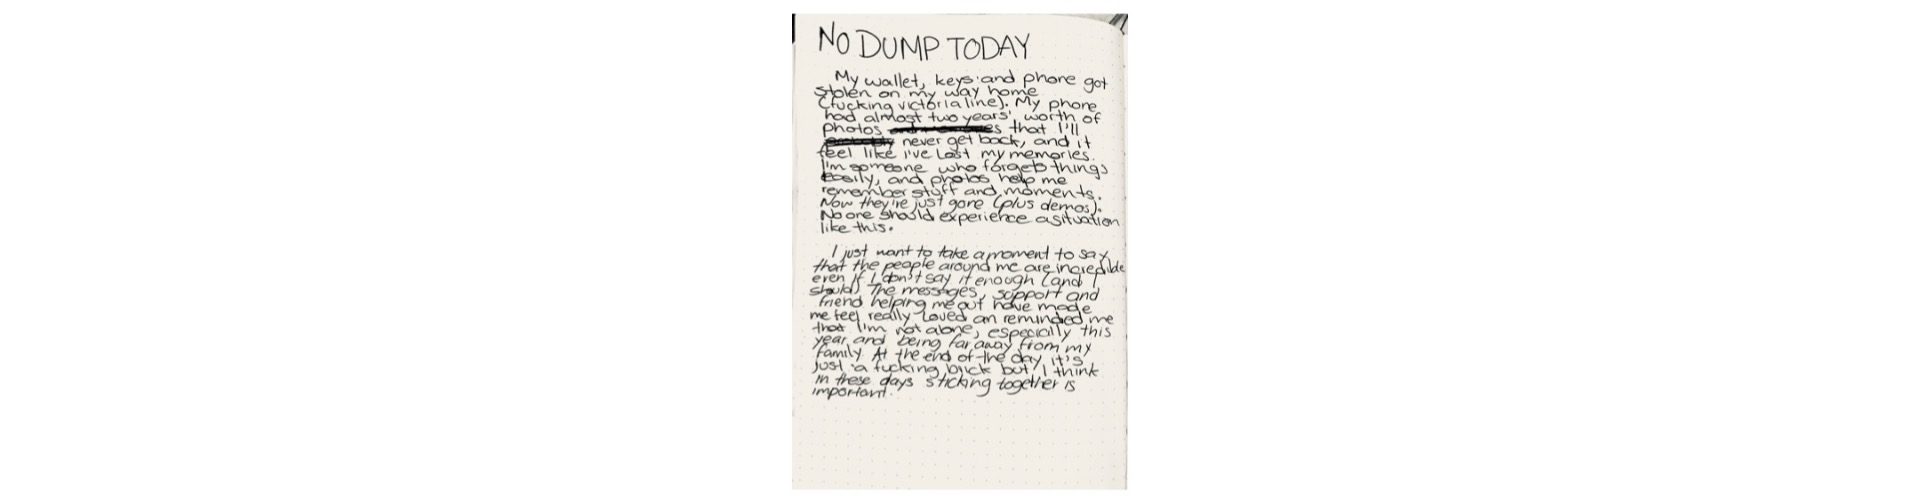 NO DUMP TODAY
My wallet, keys and phone got
stolen on my way home
(fucking victoria line). My phone
had almost two years' worth of
photos that I'll
never get back, and it
feel like i've lost my memories.
I'm someone who forgets things
easily, and photos help me
remember stuff and moments.
Now they're just gone (plus demos).
No one should experience a situation
like this.
I just want to take a moment to say
that the people around me are incredible
even if I don't say it enough (and I
should). The messages, support and
friend helping me out have made
me feel really loved an reminded me
that I'm not alone, especially this
year and being far away from my
family. At the end of the day it's
just a fucking brick but I think
in these days sticking together is
important.